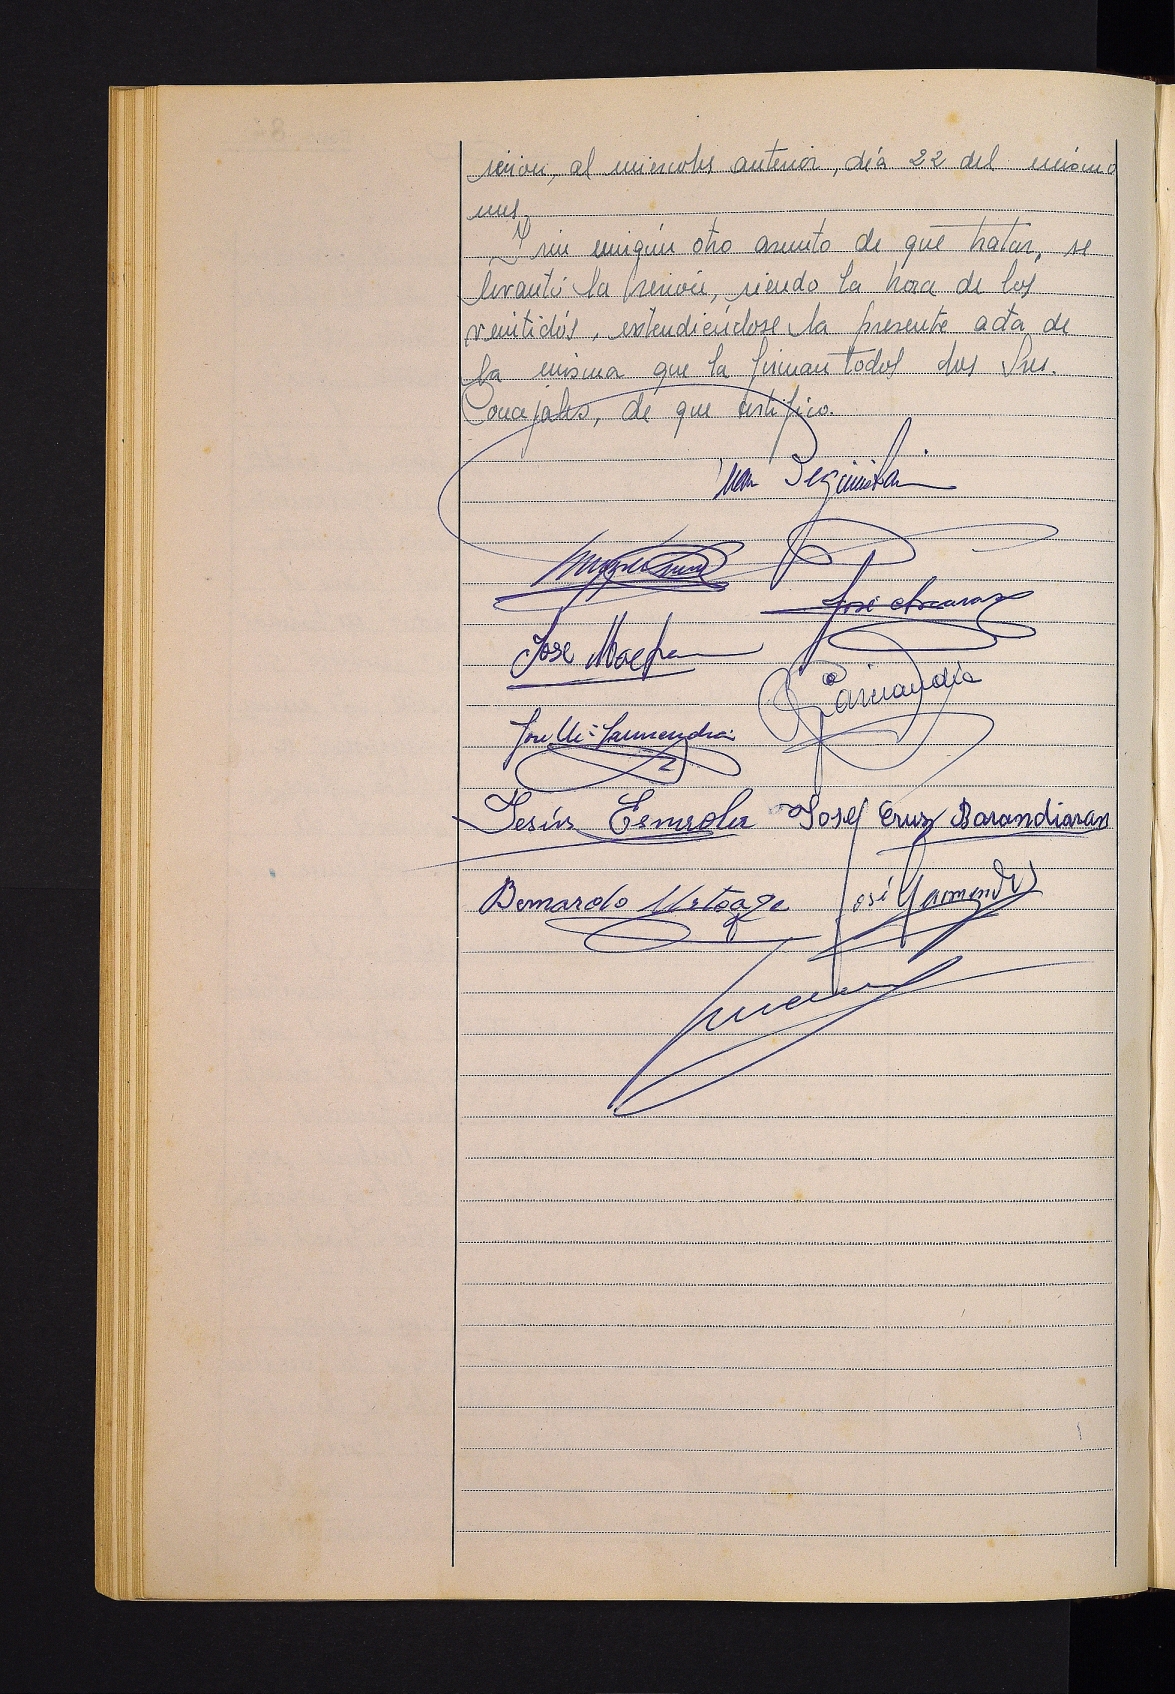 sesion, al miercoles anterior, día 22 del mismo
mes.
Y sin ningún otro asunto de que tratar, se
levantó la sesión, siendo la hora de los
veintidós, extendiéndose la presente acta de
la misma que la firman todos los Sres.
Concejales, de que certifico.
José
José
Garmendia
José Mª Garmendia
Jesús José Cruz Barandiaran
Bernardo Urteaga José Garmendia